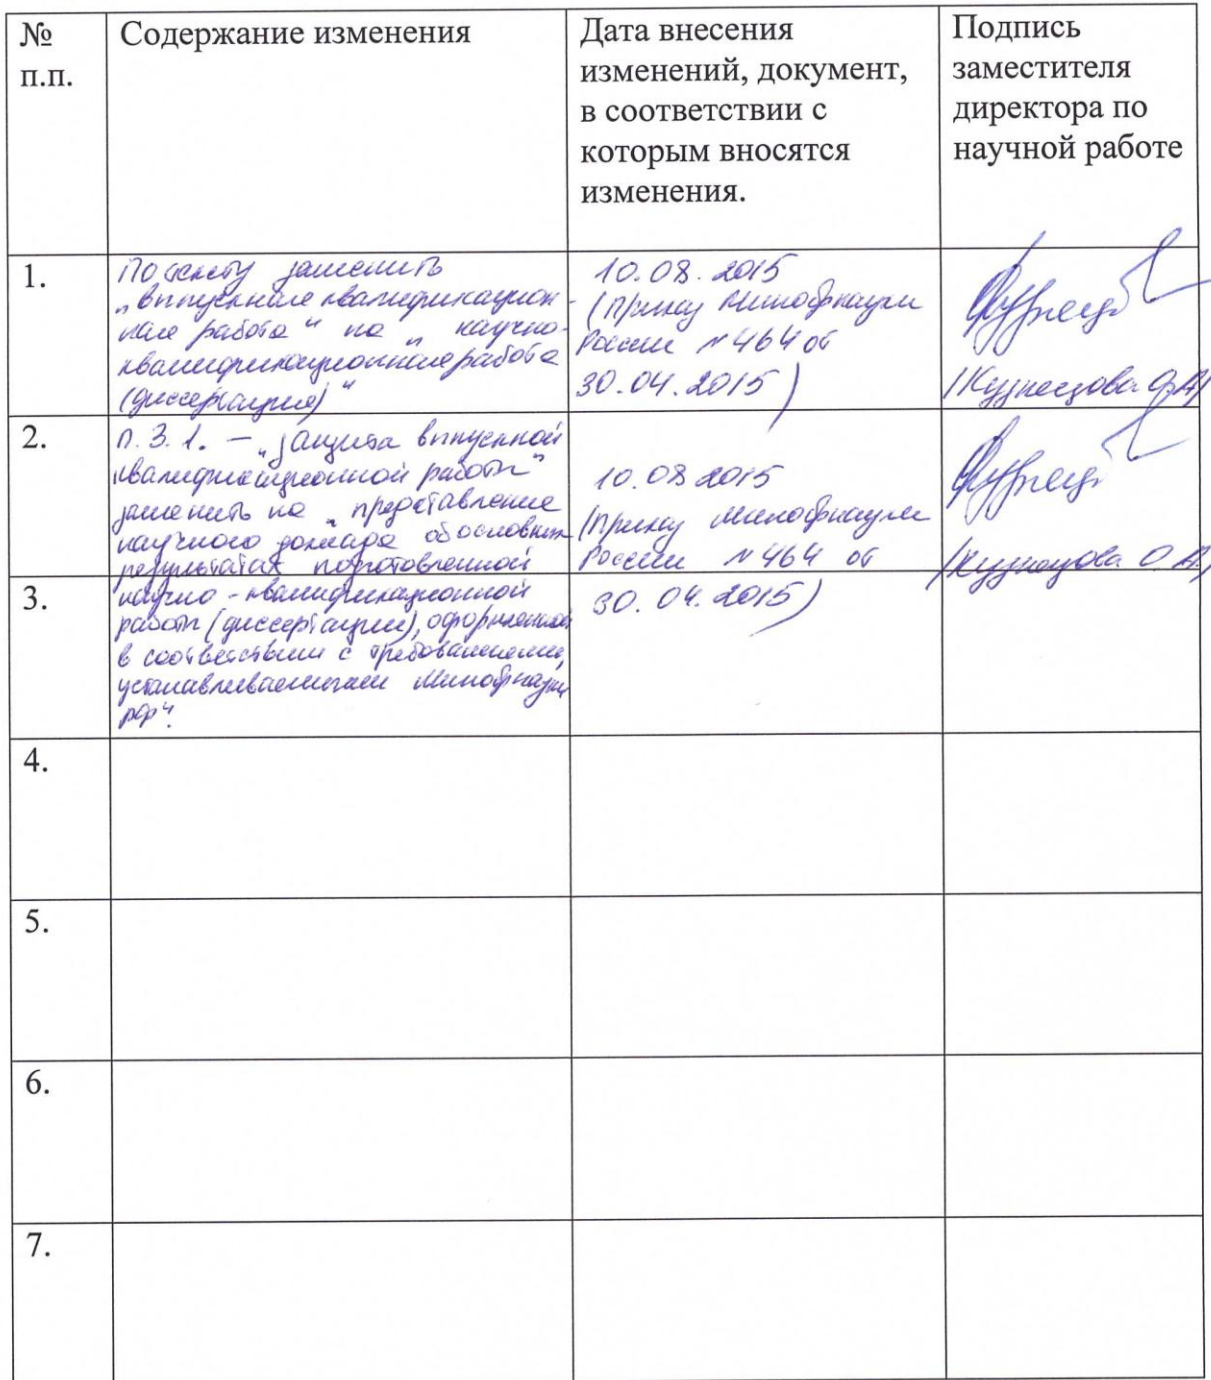 №
п.п.
Содержание изменения
Дата внесения
изменений, документ,
в соответствии с
которым вносятся
изменения.
Подпись
заместителя
директора по
научной работе
1.
По тексту заменить
„выпускная квалификацион-
ная работа“ на „научно-
квалификационная работа
(диссертация)“
10.08.2015
(Приказ Минобрнауки
России №464 от
30.04.2015)
/Кузнецова О.А/
2.
п.3.1. – „защита выпускной
квалификационной работы“
заменить на „представление
научного доклада об основных
результатах подготовленной
10.08.2015
(приказ Минобрнауки
России №464 от
/Кузнецова О.А/
3.
научно-квалификационной
работы (диссертации), оформленной
в соответствии с требованиями,
устанавливаемыми Минобрнауки
РФ“.
30.04.2015)
4.
5.
6.
7.